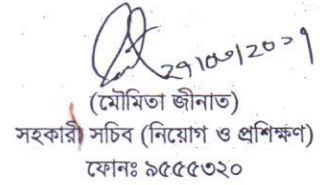 (মৌমিতা জীনাত)
সহকারী সচিব (নিয়োগ ও প্রশিক্ষণ)
ফোনঃ ৯৫৫৫৩২০